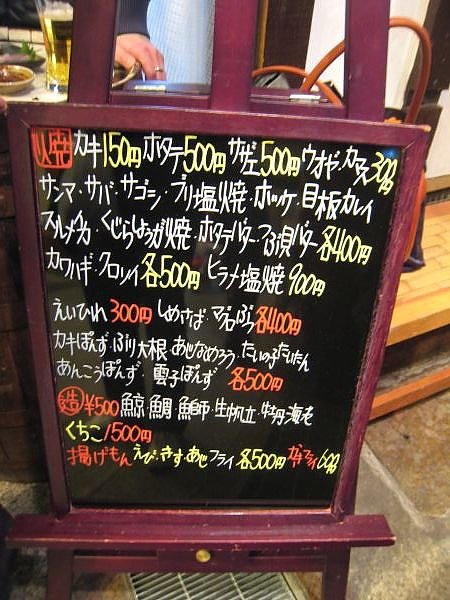 焼 カキ150円 ホタテ500円 サザエ500円 ウオヤ・カマス300円
サンマ・サバ・サゴシ・ブリ塩焼・ホッケ・目板カレイ
スルメイカ・くじらしょうが焼・ホタテバター・つぶ貝バター各400円
カワハギ・クロソイ各500円 ヒラメ塩焼900円
えいひれ300円 しめさば・マグロぶつ各400円
カキぽんず・ぶり大根・あじなめろう・たいの子たいたん
あんこうぽんず・雲子ぽんず 各500円
造 ¥500 鯨・鯛・鰤・生帆立・牡丹海老
くちこ1500円
揚げもん えび・きす・あじフライ各500円 カキフライ600円